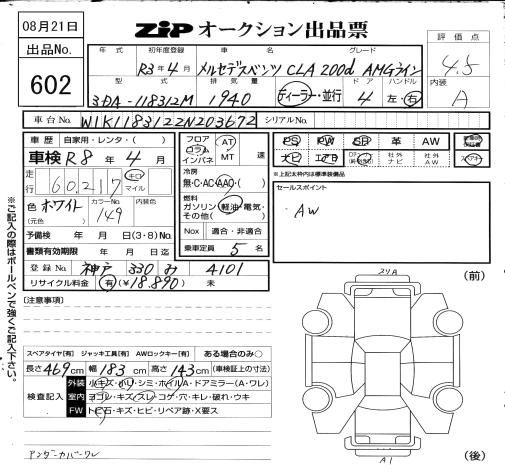 08月21日
ZIP オークション出品票
出品No.
602
評価点
4.5
内装
A
年式 初年度登録 車名 グレード
R3年4月 メルセデスベンツ CLA 200d AMGライン
型式 排気量 ドア ハンドル
3DA-118312M 1940 ディーラー・並行 4 左・右
車台No. W1K1183122N203672 シリアルNo.
車歴 自家用・レンタ( )
車検 R8年4月
走行 60,217 km マイル
色 ホワイト カラーNo. 149 内装色
(元色)
予備検 年 月 日(3・8)No.
書類有効期限 年 月 日迄
登録No. 神戸 330 み 4101
リサイクル料金 有(¥18.890) 未
フロア コラム インパネ AT MT 速
冷房
無・C・AC・AAC( )
燃料
ガソリン・軽油・電気・その他( )
Nox 適合・非適合
乗車定員 5 名
PS PW SR 革 AW
ナビ エアB 社外ナビ 社外AW スペアキー
※上記太枠内は標準装備品
セールスポイント
・AW
※ご記入の際はボールペンで強くご記入下さい。
[注意事項]
スペアタイヤ[有] ジャッキ工具[有] AWロックキー[有] ある場合のみ○
長さ 469cm 幅 183cm 高さ 143cm (車検証上の寸法)
検査記入
外装 小キズ・小リ・シミ・ホイルA・ドアミラー(A・ワレ)
室内 ヨゴレ・キズ・スレ・コゲ・穴・キレ・破れ・ウキ
FW トビ石・キズ・ヒビ・リペア跡・X要ス
アンダーカバーワレ
(前)
(後)
A1